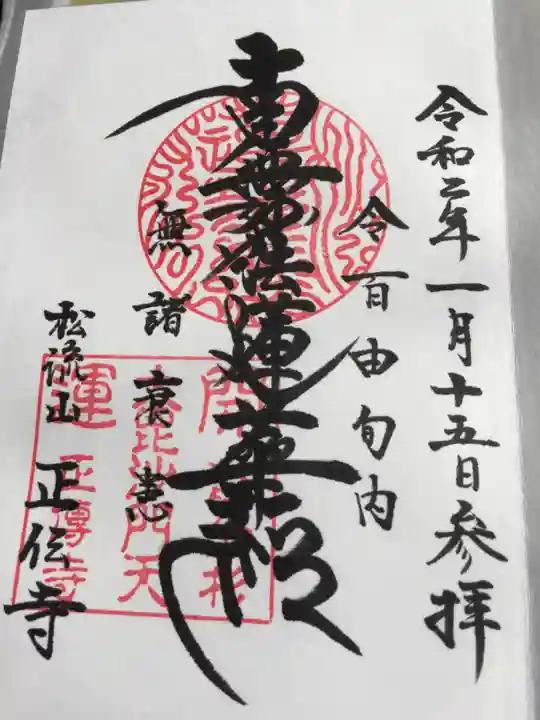 令和二年一月十五日参拝
令百由旬内
南無妙法蓮華経
無諸衰患
松流山 正伝寺
開運
毘沙門天
正傳寺